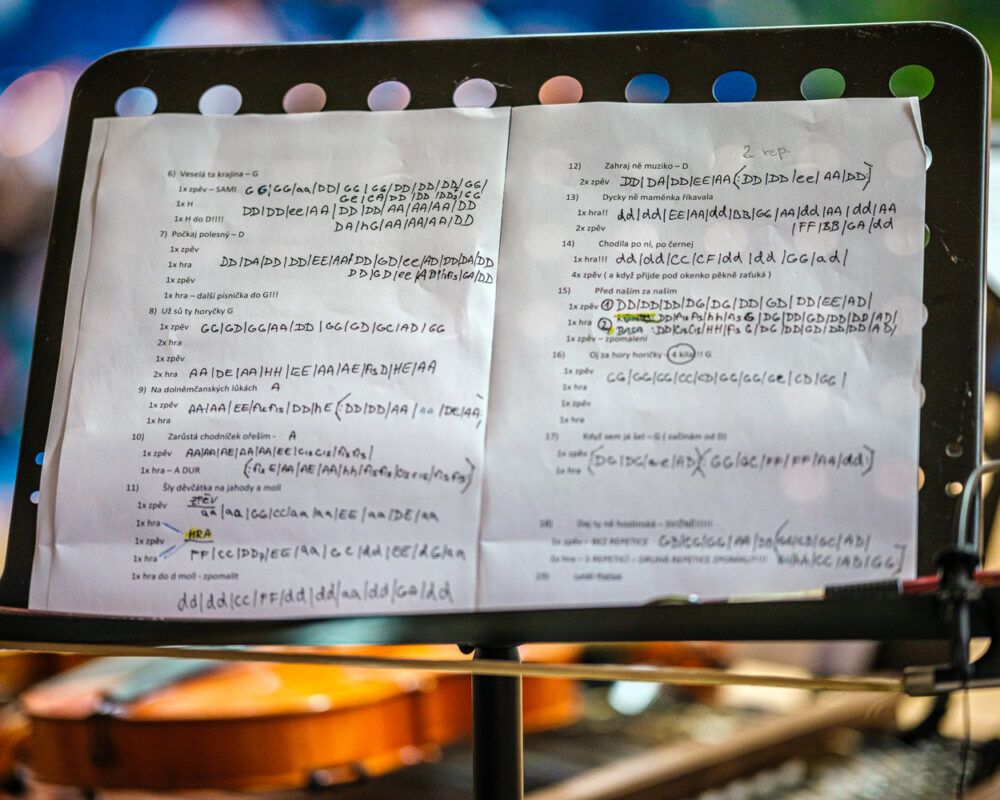 6) Veselá ta krajina – G
1x zpěv – SAMI GG/GG/aa/DD/GG/GG/DD/DD/DD/GG/
1x H
DD/DD/ee/AA/DD/DD/AA/AA/AA/DD
1x H do D!!!!
DA/hG/AA/AA/AA/DD
7) Počkaj polesný – D
1x zpěv
1x hra DD/DA/DD/DD/EE/AA/DD/GD/ee/AD/DD/DA/DD
1x zpěv DD/GD/ee/AD/hfis/GA/DD
1x hra – další písnička do G!!!
8) Už sú ty horyčky G
1x zpěv GG/GD/GG/AA/DD/GG/GD/GC/AD/GG
2x hra
1x zpěv
2x hra AA/DE/AA/HH/EE/AA/AE/fisD/HE/AA
9) Na dolněmčanských lúkách A
1x zpěv AA/AA/EE/fisfis/DD/hE(:DD/DD/AA/AA/DE/AA
1x hra
10) Zarústá chodníček ořeším - A
1x zpěv AA/AA/AE/AA/AA/EE/ciscis/fisfis/
1x hra – A DUR
11) Šly děvčátka na jahody a moll
ZPĚV
1x zpěv aa/aa/GG/CC/aa/aa/EE/aa/DE/aa
1x hra
1x zpěv HRA
1x hra FF/CC/DD/EE/aa/GC/dd/EE/dG/aa
1x hra do d moll - zpomalit
dd/dd/CC/FF/dd/dd/aa/dd/GG/dd
2 rep.
12) Zahraj ně muziko – D
2x zpěv DD/DA/DD/EE/AA(:DD/DD/ee/AA/DD:)
13) Dycky ně maměnka říkavala
1x hra!! dd/dd/EE/AA/dd/BB/GG/AA/dd/AA/dd/AA
2x zpěv /FF/BB/GA/dd
14) Chodila po ní, po černej
1x hra!!! dd/dd/CC/CF/dd/dd/GG/ad/
4x zpěv ( a když přijde pod okenko pěkně zaťuká )
15) Před naším za naším
1x zpěv 1 DD/DD/DD/DG/DG/DD/GD/DD/EE/AD/
DD/fisfis/hh/fisG/DG/DD/GD/DD/DD/AD/
1x hra 2 BASA :DD/CisCis/HH/fisG/DG/DD/GD/DD/DD/AD/
1x zpěv – zpomalení
16) Oj za hory horičky – 4 kila!! G
1x zpěv GG/GG/GG/CC/CD/GG/GG/Ge/CD/GG/
1x hra
1x zpěv
1x hra
17) Když sem já šel – G ( začínám od D)
1x zpěv
1x hra
18)
19)